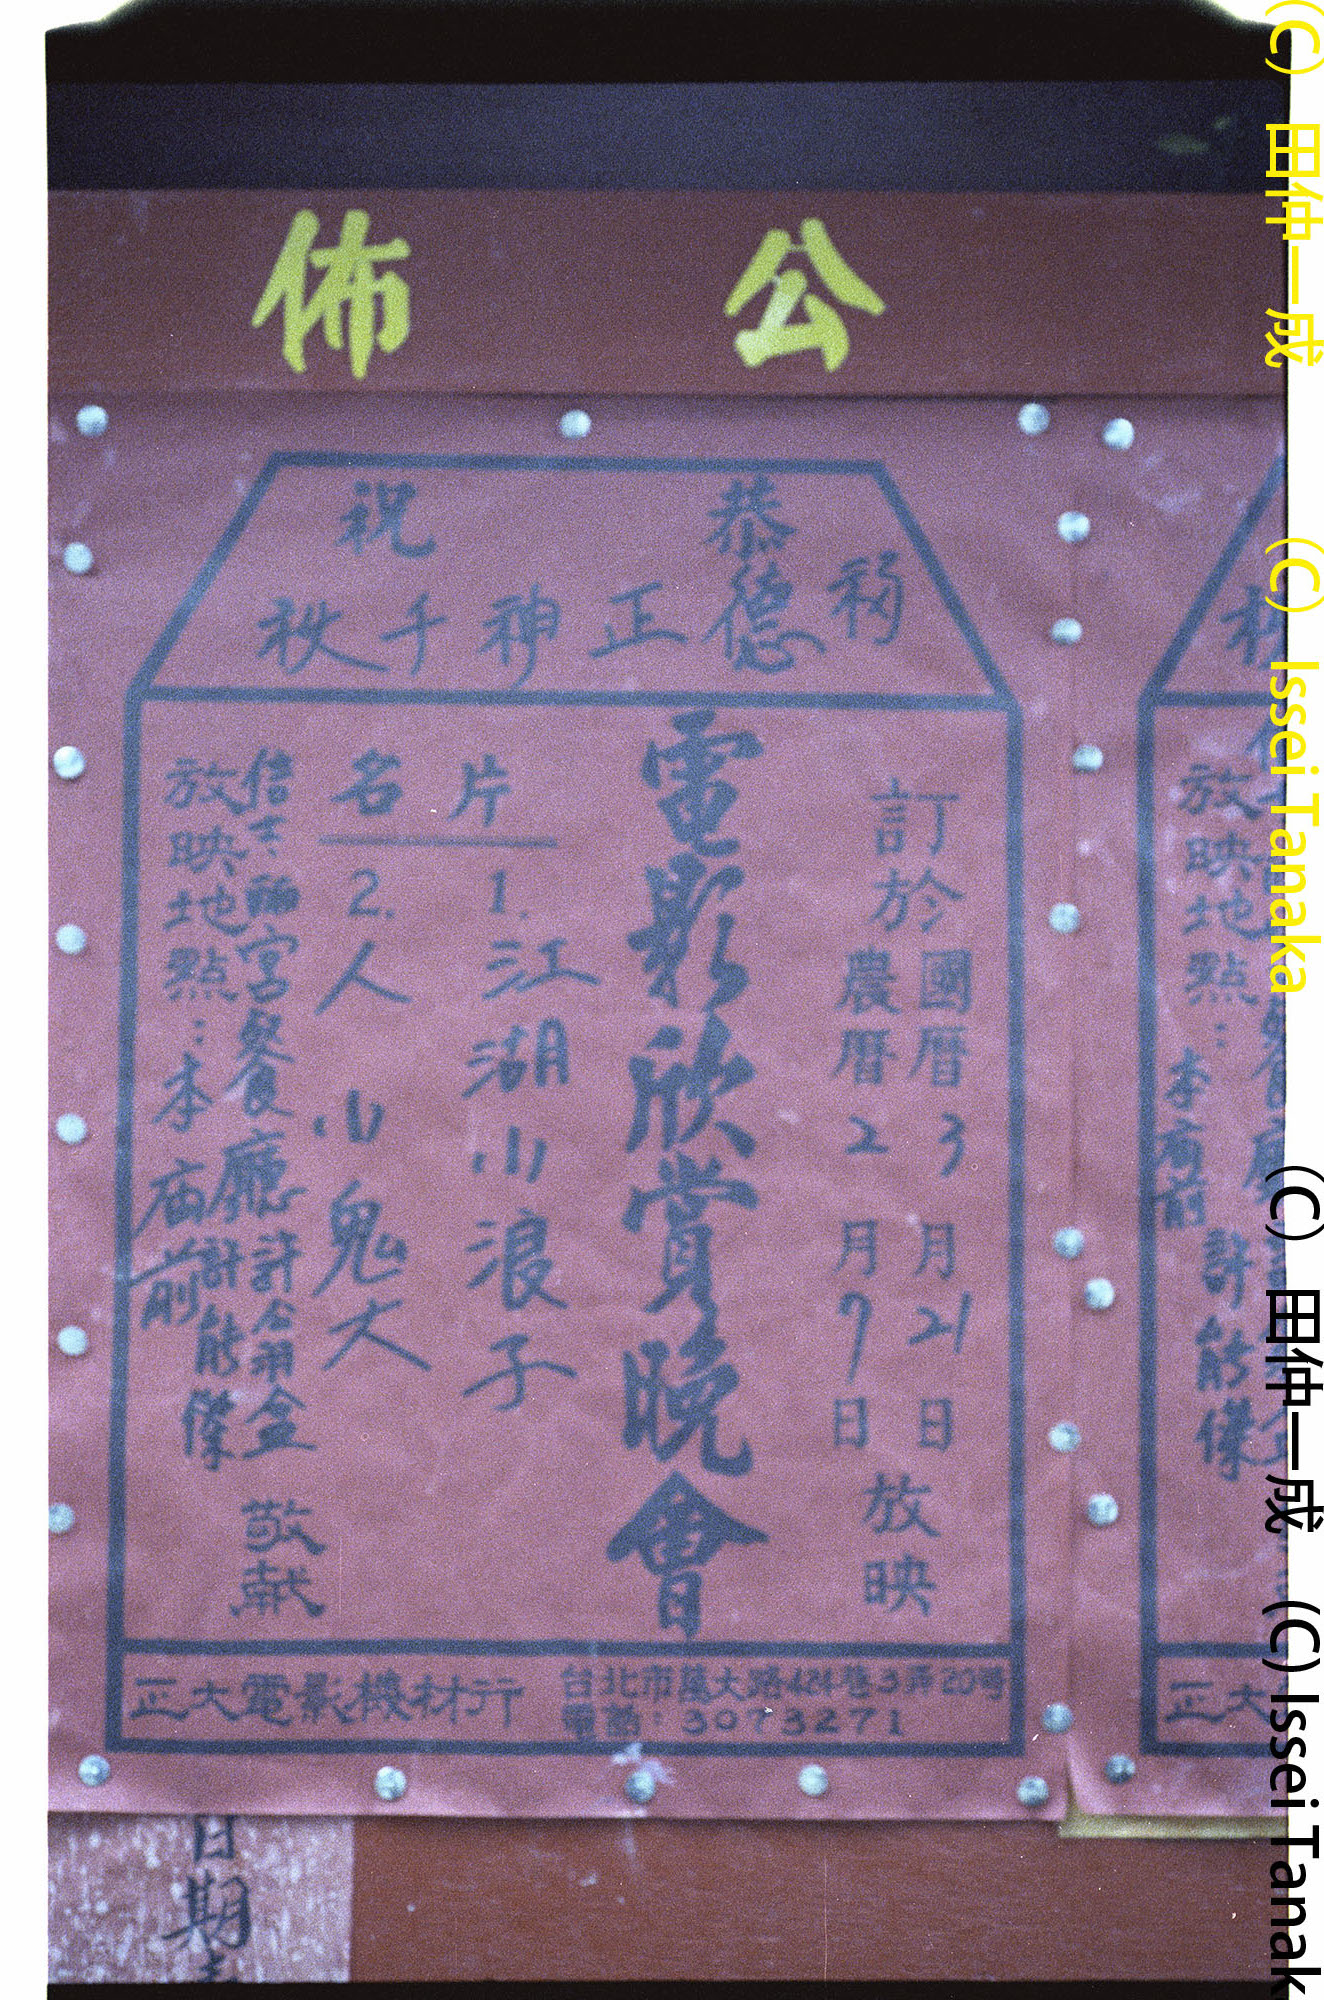 公佈
恭祝
福德正神千秋
訂於國曆3月21日
農曆2月9日
放映
電影欣賞晚會
片名
1.江湖小浪子
2.人小鬼大
信士
宮餐廳許
盒
許能傑
敬献
放映地點：本庙前
正大電影機材行
台北市萬大路424巷3弄20号
電話：3073271
放映地點：本庙前
許能傑
正大
日期
(C) 田仲一成 (C) Issei Tanaka
(C) 田仲一成 (C) Issei Tanak